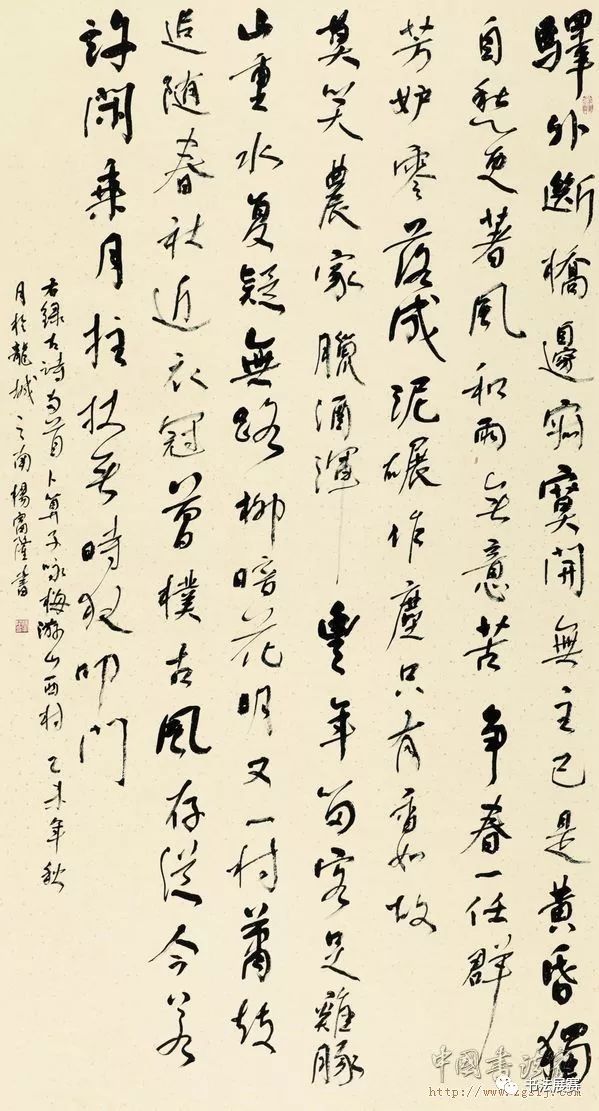 驛外斷橋邊寂寞開無主已是黃昏獨
自愁更著風和雨無意苦爭春一任群
芳妒零落成泥碾作塵只有香如故
莫笑農家臘酒渾豐年留客足雞豚
山重水复疑無路柳暗花明又一村蕭鼓
追随春社近衣冠簡樸古風存從今若
許閑乘月拄杖無時夜叩門
右録古詩两首卜算子咏梅游山西村 乙未年秋
月於龍城之南楊富隆書
中國書法
书法展赛